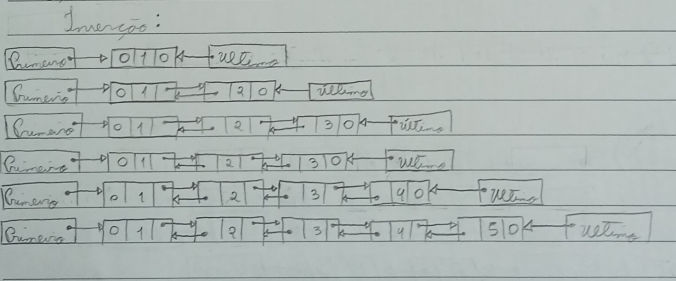 Inserção:
Primeiro 0 1 0 Último
Primeiro 0 1 2 0 Último
Primeiro 0 1 2 3 0 Último
Primeiro 0 1 2 3 0 Último
Primeiro 0 1 2 3 4 0 Último
Primeiro 0 1 2 3 4 5 0 Último